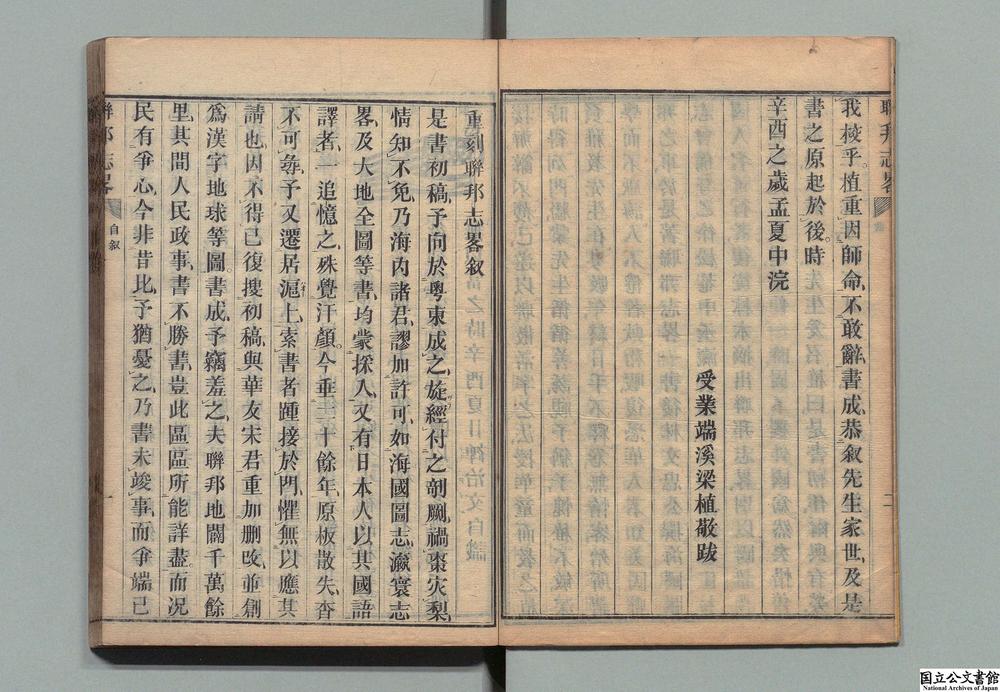 聯邦志畧
二
我梭乎植重因師命不敢辭書成恭叙先生家世及是
書之原起於後時
辛酉之歲孟夏中浣
受業端溪梁植敬跋
重刻聯邦志畧叙
是書初稿予向於粵東成之旋經付之剞劂禍棗灾梨
情知不免乃海内諸君謬加許可如海國圖志瀛寰志
畧及大地全圖等書均蒙採入又有日本人以其國語
譯者一追憶之殊覺汗顏今垂二十餘年原板散失杳
不可尋予又遷居滬上索書者踵接於門懼無以應其
請也因不得已復搜初稿與華友宋君重加删改並創
爲漢字地球等圖書成予竊羞之夫聯邦地闊千萬餘
里其間人民政事書不勝書豈此區區所能詳盡而况
民有爭心今非昔比予猶憂之乃書未竣事而爭端已
聯邦志畧
自叙
一
国立公文書館
National Archives of Japan